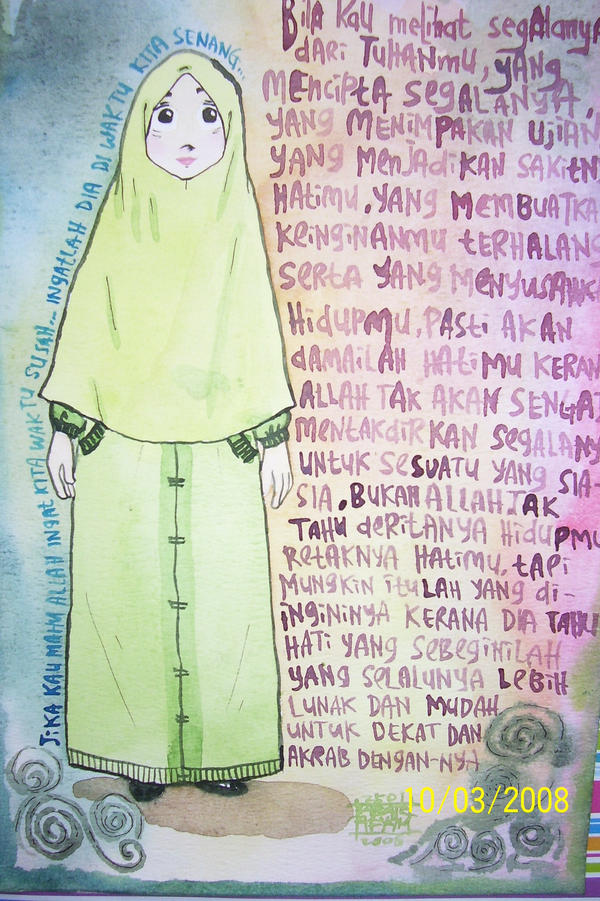 JIKA KAU MAHU ALLAH INGAT KITA WAKTU SUSAH... INGATLAH DIA DI WAKTU KITA SENANG...
Bila Kau melihat segalanya
dari TUHANmu, yang
mencipta segalanya,
yang menimpakan ujian
yang menjadikan sakitn
Hatimu, yang membuatka
keinginanmu terhalang
serta yang menyusahk
Hidupmu, pasti akan
damailah hatimu keran
ALLAH tak akan sengaj
mentakdirkan segalany
untuk sesuatu yang sia-
sia. Bukan ALLAH tak
tahu deritanya hidupmu
retaknya hatimu, tapi
mungkin itulah yang di-
ingininya kerana Dia tahu
hati yang sebeginilah
yang selalunya lebih
lunak dan mudah
untuk dekat dan
akrab dengan-Nya
2008
10/03/2008